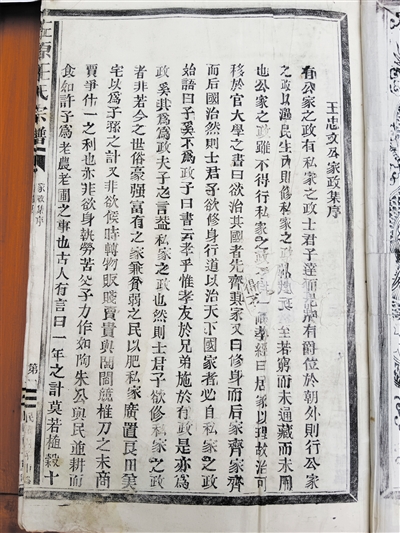 王忠文公家政集序
有公家之政有私家之政士君子達而
有爵位於朝外則行公家
之政以澤民生內則修私家之政
至若窮而未通藏而未用
也公家之政雖不得行私家之政
孝經曰居家以理故治可
移於官大學之書曰欲治其國者先齊其家又曰修身而后家齊家齊
而后國治然則士君子欲修身行道以治天下國家者必自私家之政
始語曰子奚不為政子曰書云孝乎惟孝友於兄弟施於有政是亦為
政奚其為為政夫子之言蓋私家之政也然則士君子欲修私家之政
者非若今之世俗豪強富有之家兼貧弱之民以肥私家廣置良田美
宅以為子孫之計又非欲候時轉物販賤賣貴與闤闠競椎刀之末商
賈爭什一之利也亦非欲身執勞苦父子力作如陶朱公與民並耕而
食如許子為老農老圃之事也古人有言曰一年之計莫若植穀十
汪氏宗譜
家政集序
第一
民